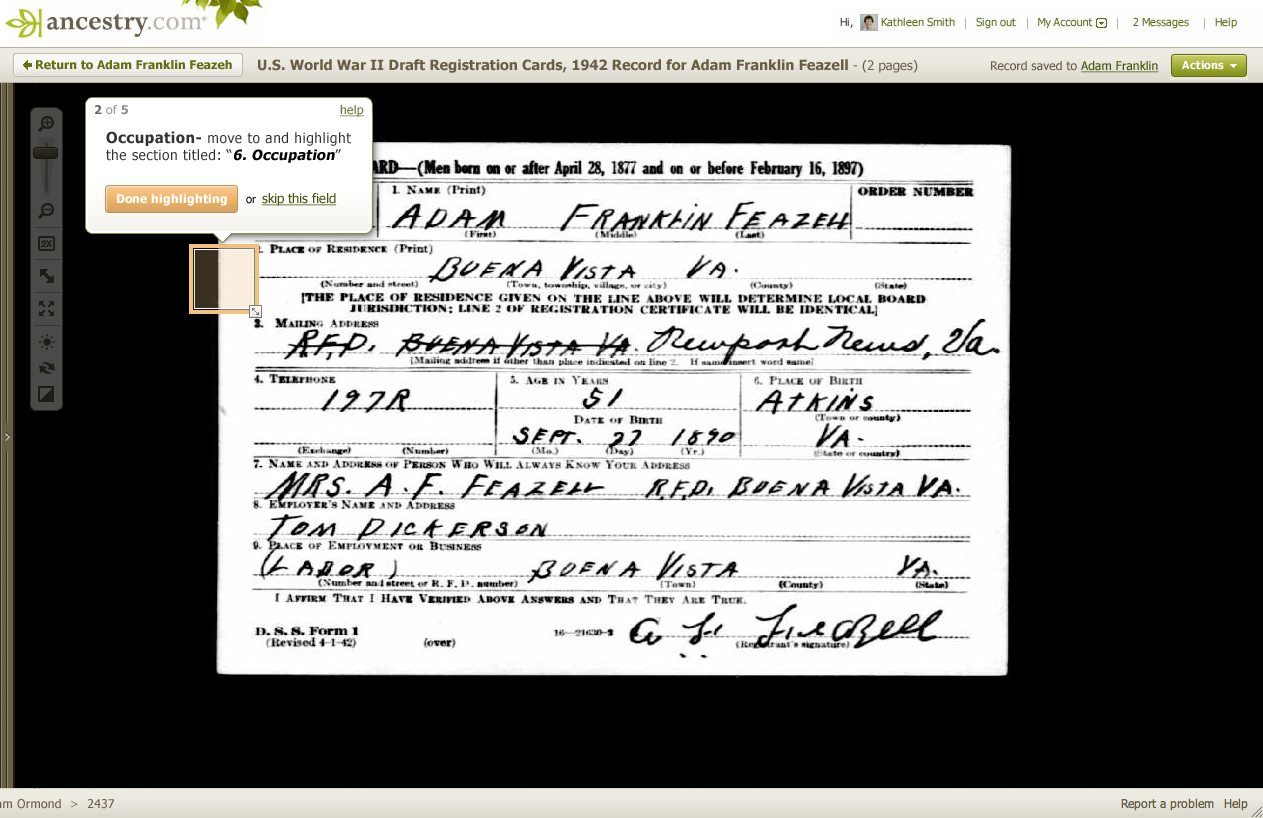 ancestry.com
Hi, Kathleen Smith | Sign out | My Account | 2 Messages | Help
Return to Adam Franklin Feazeh
U.S. World War II Draft Registration Cards, 1942 Record for Adam Franklin Feazell - (2 pages)
Record saved to Adam Franklin
Actions
2 of 5 help
Occupation- move to and highlight
the section titled: “6. Occupation”
Done highlighting or skip this field
2X
ARD—(Men born on or after April 28, 1877 and on or before February 16, 1897)
1. NAME (Print)
ORDER NUMBER
ADAM FRANKLIN FEAZELL
(First) (Middle) (Last)
2. PLACE OF RESIDENCE (Print)
BUENA VISTA VA.
(Number and street) (Town, township, village, or city) (County) (State)
[THE PLACE OF RESIDENCE GIVEN ON THE LINE ABOVE WILL DETERMINE LOCAL BOARD
JURISDICTION; LINE 2 OF REGISTRATION CERTIFICATE WILL BE IDENTICAL]
3. MAILING ADDRESS
R.F.D. BUENA VISTA VA. Newport News, Va.
[Mailing address if other than place indicated on line 2. If same insert word same]
4. TELEPHONE 5. AGE IN YEARS 6. PLACE OF BIRTH
197R 51 ATKINS
(Town or county)
DATE OF BIRTH
SEPT. 27 1890 VA.
(Exchange) (Number) (Mo.) (Day) (Yr.) (State or country)
7. NAME AND ADDRESS OF PERSON WHO WILL ALWAYS KNOW YOUR ADDRESS
MRS. A. F. FEAZELL R.F.D. BUENA VISTA VA.
8. EMPLOYER'S NAME AND ADDRESS
TOM DICKERSON
9. PLACE OF EMPLOYMENT OR BUSINESS
(LABOR) BUENA VISTA VA.
(Number and street or R. F. D. number) (Town) (County) (State)
I AFFIRM THAT I HAVE VERIFIED ABOVE ANSWERS AND THAT THEY ARE TRUE.
D. S. S. Form 1
(Revised 4-1-42) (over) 16—21630-2
A F Feazell
(Registrant's signature)
am Ormond > 2437
Report a problem Help